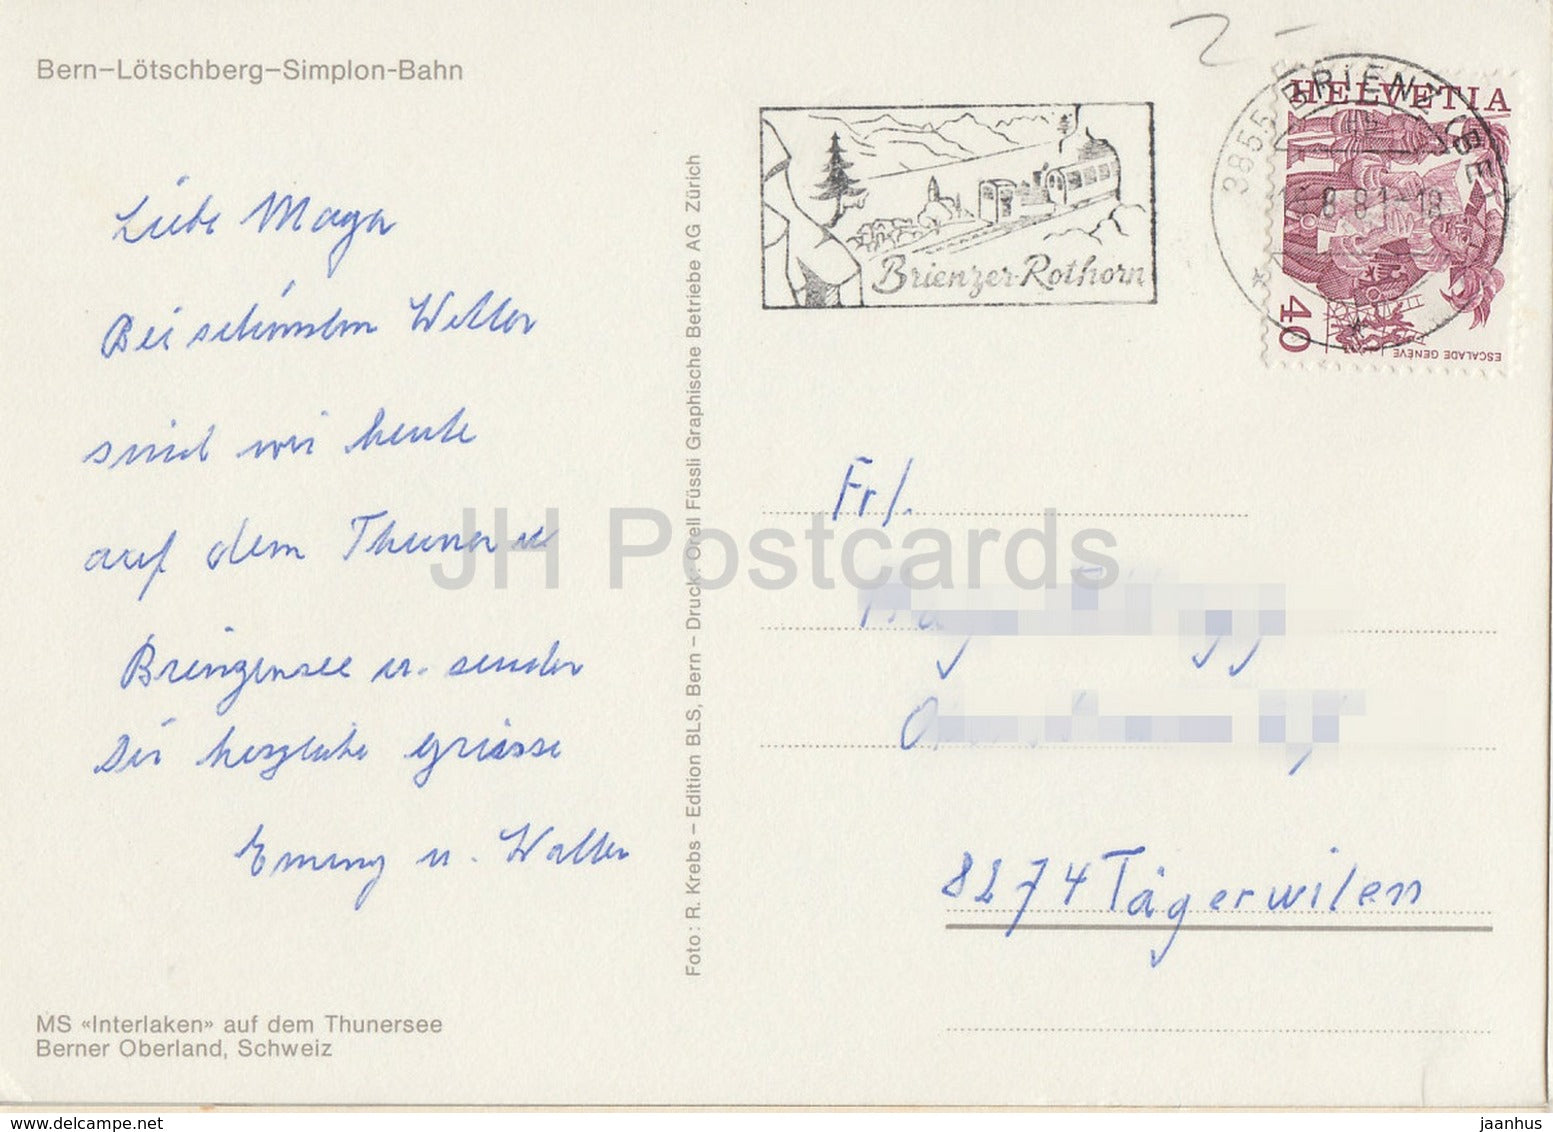 Bern–Lötschberg–Simplon-Bahn
Liebe Maya
Bei schönstem Wetter
sind wir heute
auf dem Thuner u
Brienzersee u. senden
Dir herzliche Grüsse
Emmy u. Walter
MS «Interlaken» auf dem Thunersee
Berner Oberland, Schweiz
Foto: R. Krebs – Edition BLS, Bern – Druck: Orell Füssli Graphische Betriebe AG Zürich
Brienzer-Rothorn
3855 BRIENZ (BE)
8.81-18
HELVETIA
40
ESCALADE GENÈVE
Frl.
8274 Tägerwilen
JH Postcards
www.delcampe.net
jaanhus